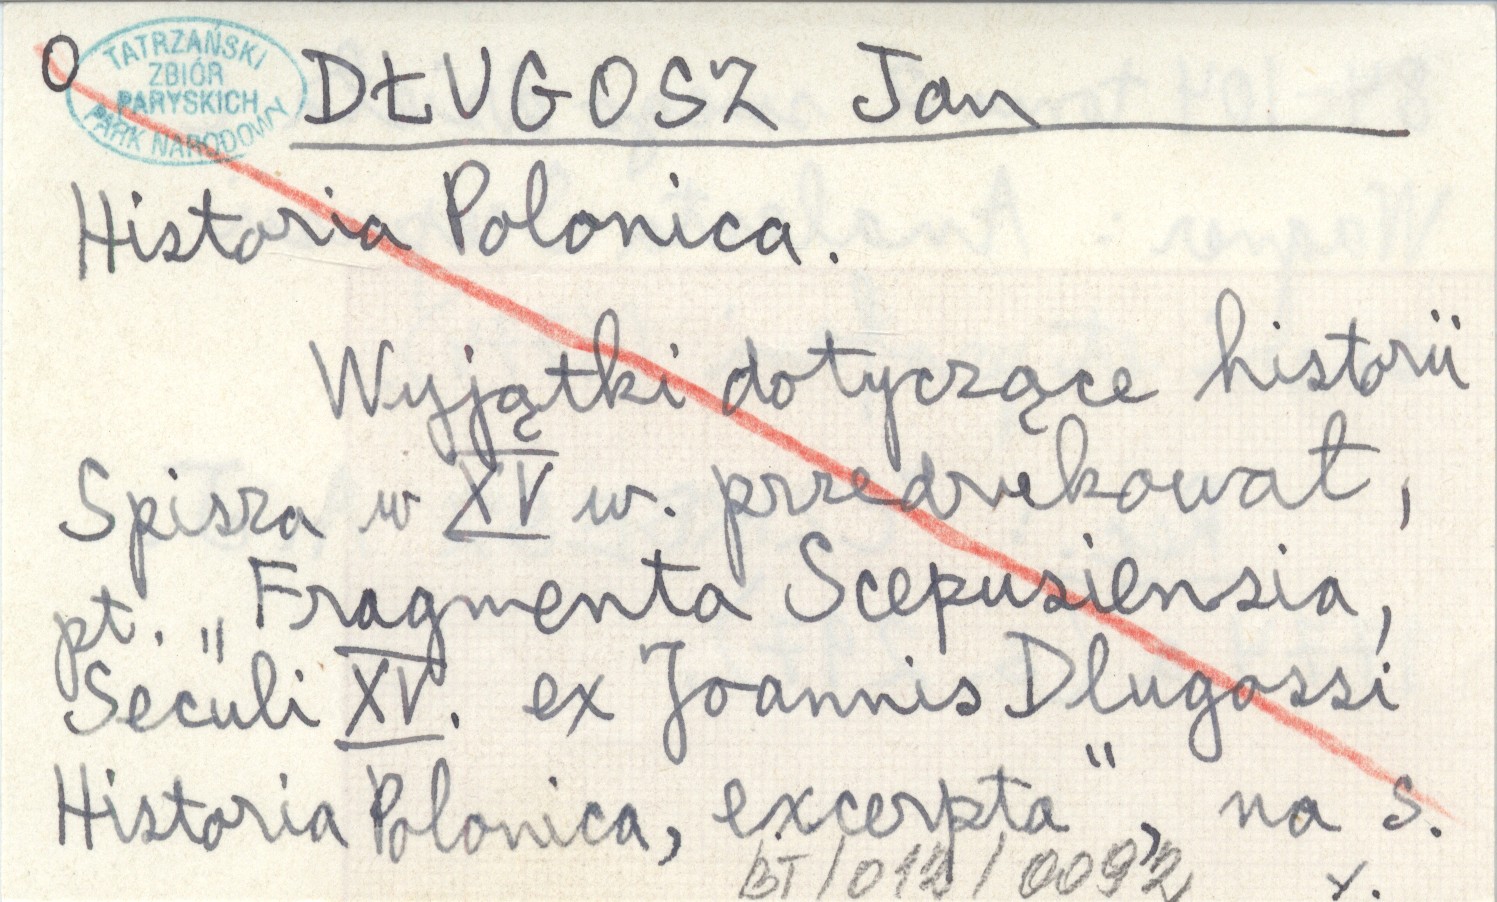 O
TATRZAŃSKI
ZBIÓR
PARYSKICH
PARK NARODOWY
DŁUGOSZ Jan
Historia Polonica.
Wyjątki dotyczące historii
Spisza w XV w. przedrukował,
pt. „Fragmenta Scepusiensia,
Seculi XV. ex Joannis Dlugossi
Historia Polonica, excerpta", na s.
BT/012/0092 v.